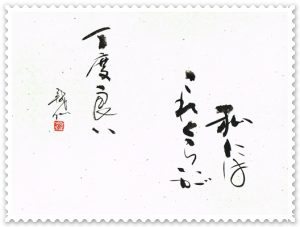 私には
これくらいが
丁度良い